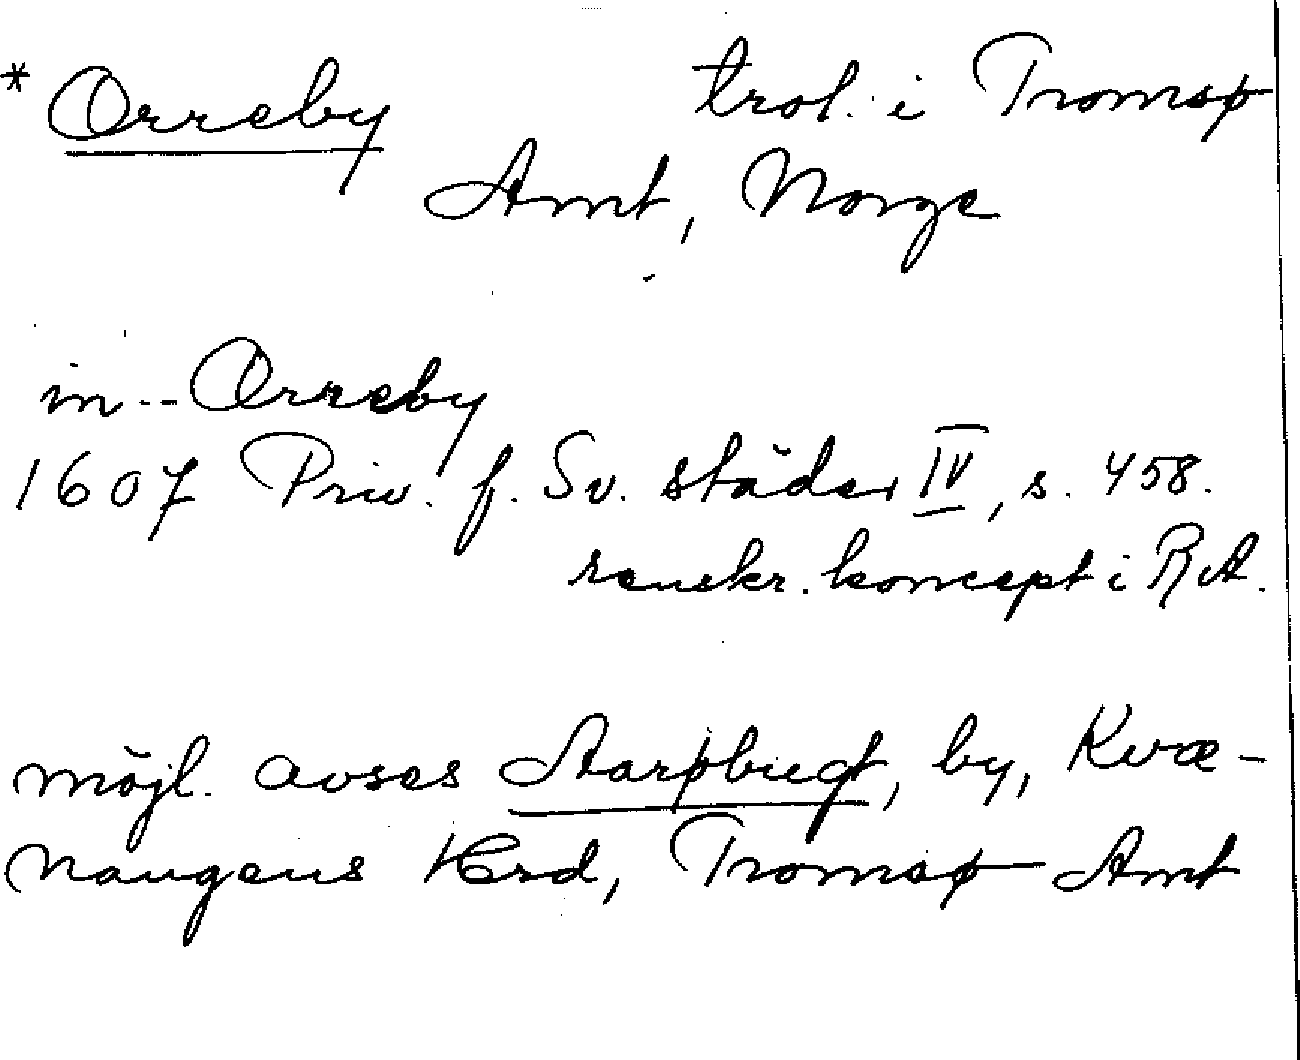 * Orreby trol. i Tromsø
Amt, Norge
in -- Orreby
1607 Priv. f. Sv. städer IV, s. 458.
renskr. koncept i RA.
möjl. avses Aarøbugt, by, Kvæ-
naugens Hrd, Tromsø Amt